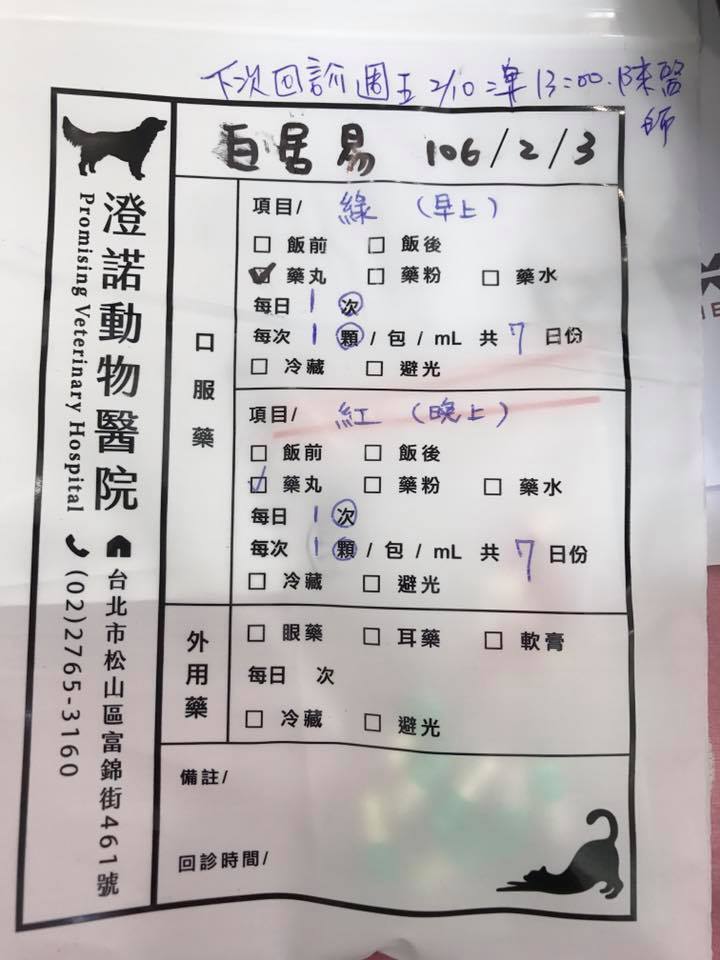 下次回診 週五 2/10 準 13:00. 陳醫師
白居易 106/2/3
澄諾動物醫院
Promising Veterinary Hospital
台北市松山區富錦街461號
(02)2765-3160
口服藥
項目/ 綠 (早上)
□ 飯前 □ 飯後
☑ 藥丸 □ 藥粉 □ 藥水
每日 1 次
每次 1 顆 / 包 / mL 共 7 日份
□ 冷藏 □ 避光
項目/ 紅 (晚上)
□ 飯前 □ 飯後
☑ 藥丸 □ 藥粉 □ 藥水
每日 1 次
每次 1 顆 / 包 / mL 共 7 日份
□ 冷藏 □ 避光
外用藥
□ 眼藥 □ 耳藥 □ 軟膏
每日 次
□ 冷藏 □ 避光
備註/
回診時間/